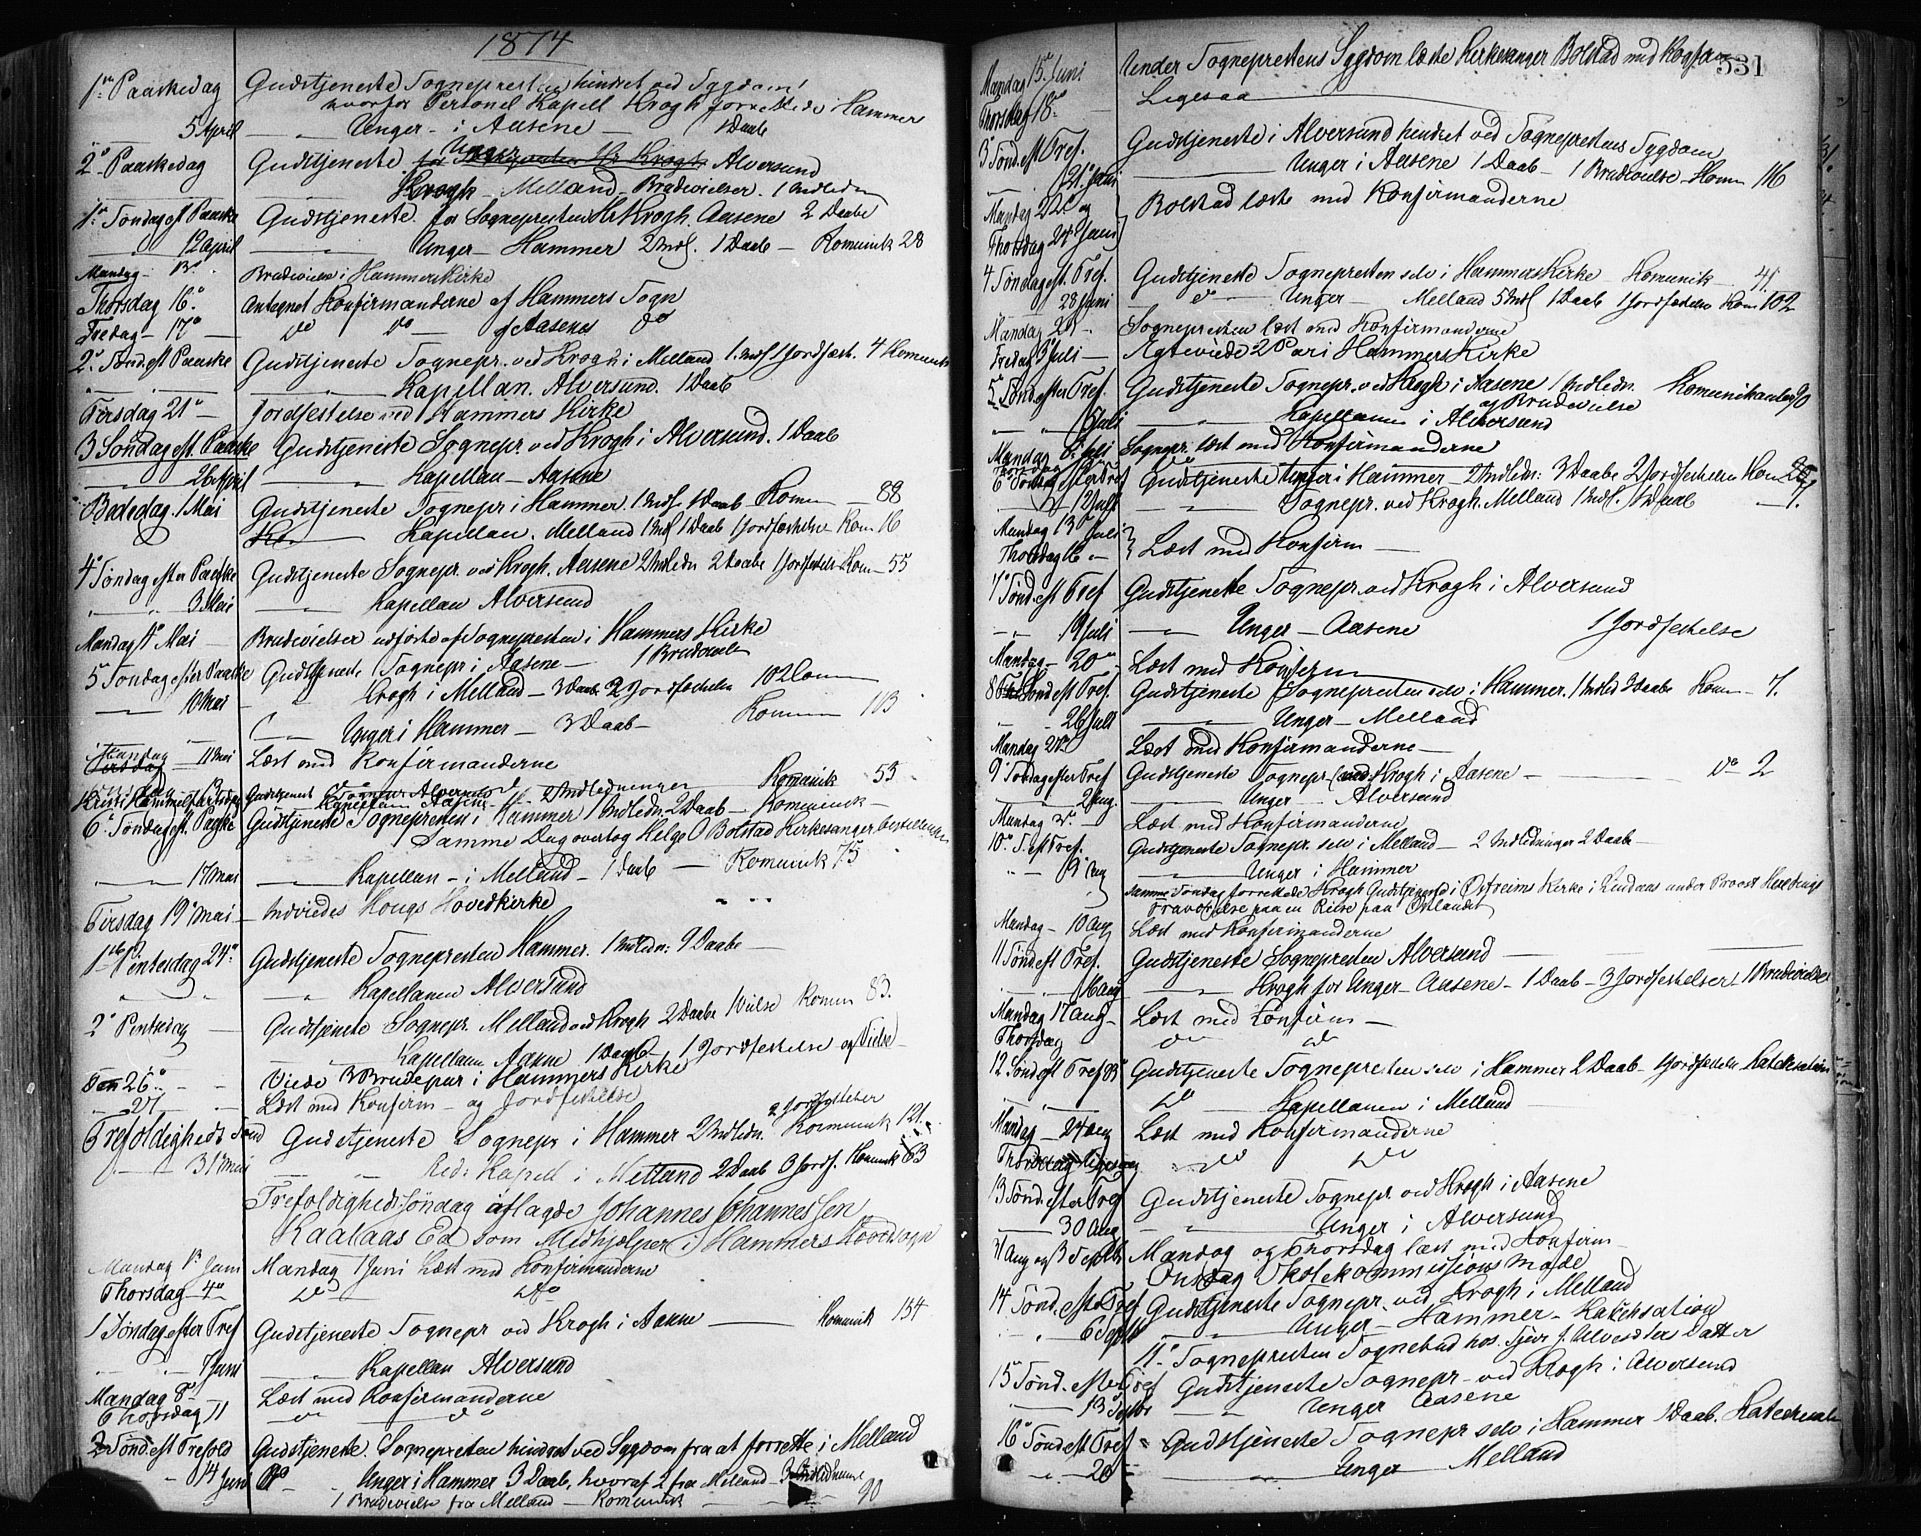 1874
1ste Paaskedag Gudstjeneste Sognepresten hindret ved Sygdom!
hvorfor Personel Kapell Krogh forrettede i Hammer
5 April — " Unger - i Aasene — 1 Daab
2den Paaskedag Gudstjeneste Unger Alversund
Krogh - Melland - Brudevielser. 1 Indledn
1ste Søndag eft Paaske Gudstjeneste for Sognepresten Hr Krogh. Aasene 2 Daabe
12 april — Unger - Hammer 2 Indl. 1 Daab - Komunik 28
Mandag - 13de Brudevielse i Hammers Kirke
Thorsdag 16de Antegnet Konfirmanderne af Hammers Sogn
Fredag - 17de do do af Aasenes do
2den Sønd eft Paaske Gudstjeneste Sognepr. ved Krogh i Melland 1 Indl 1 Jordfæst. 4 Komunik
" " — Kapellan. Alversund. 1 Daab
Tirsdag 21de - Jordfestelse ved Hammers Kirke
3 Søndag eft. Paaske Gudstjeneste Sognepr. ved Krogh i Alversund. 1 Daab
26 April — Kapellan - Aasene
Bededag. 1 Mai Gudstjeneste Sognepr i Hammer. 1 Indl. 1 Daab Komm - 88
Kapellan. Melland 1 Indl 1 Daab 1 Jordfæstelse Kom 16
4de Søndag efter Paaske Gudstjeneste Sognepr. ved Krogh. Aasene 2 Indledn 2 Daabe 1 Jordfestels Kom - 55
" " 3 Mai — Kapellan Alversund
Mandag 4de Mai - Brudevielser udførte af Sognepresten i Hammers Kirke
5 Søndag efter Paaske Gudstjeneste Sognepr i Aasene - 1 Brudevielse
10 Mai " Krogh i Melland - 3 Daab 2 Jordfestelse 102 Com
" Unger i Hammer - 3 Daab - Komun 113
11 Mai Læst med Konfirmanderne
Kristi Himmelfartsdag Gudstjenest Sognepr Alversund 2 Indledninger Komunik 53
Kapellan Aasene
6te Søndag eft. Paaske Gudstjeneste Sognepresten i Hammer 1 Indledn. 2 Daab - Komunik -
Samme Dag overtog Helge O Bolstad Kirkesangerbestillingen
17 Mai — Kapellan - i Melland - 1 Daab — Komunik 75
Tirsdag 19de Mai - Indviedes Hougs Hovedkirke
1ste Pintsedag 24de Gudstjeneste Sognepresten Hammer. 1 Indledn: 9 Daabe -
" — Kapellanen Alversund
2den Pintsedag Gudstjeneste Sognepr. Melland ved Krogh 2 Daabe 1 Vielse Komun 83.
Kapellanen Aasene 1 Daab - 1 Jordfestelse og Vielse
Den 26de - - Viede 3 Brudepar i Hammers Kirke
" - 27 - Læst med Konfirm - og Jordfestelse
Trefoldigheds Sønd Gudstjeneste Sognepr i Hammer 2 Indledn. 2 Jordfestelser Komunik 121.
31 Mai Res: Kapell i Melland 2 Daab 3 Jordf. Komunik 63
Trefoldighedssøndag aflagde Johannes Johannessen
Kaalaas Ed som Medhjælper i Hammers Hovedsogn
Mandag 1ste Juni Mandag 1 Juni Læst med Konfirmanderne
Thorsdag - 4de do do
1 Søndag efter Tref Gudstjeneste Sognepr ved Krogh i Aasene — Komunik 154
" " 7 Juni — Kapellan Alversund
Mandag 8de - Læst med Konfirmanderne
Thorsdag 11 do do
2 Sønd eft Trefold Gudstjeneste. Sognepresten hindret ved Sygdom fra at forrette i Melland
14 Juni do - Unger i Hammer 3 Daab, hvoraf 2 fra Melland - 3 Indledninne
1 Brudevielse fra Melland - Komunik — 90
531
Mandag 15de Juni Under Sogneprestens Sygdom læste Kirkesanger Bolstad med Konfirm
Thorsdag 18de Ligesaa
3 Sønd. eft Tref. Gudstjeneste i Alversund hindret ved Sogneprestens Sygdom
21de Juni — Unger i Aasene 1 Daab - 1 Brudevielse Komm 116
Mandag 22de og } Bolstad læste med Konfirmanderne
Thorsdag 24 Juni
4 Søndag eft. Tref. Gudstjeneste Sognepresten selv i Hammers Kirke Komunik - 4.
28 Juni do - Unger - Melland 5 Indl 1 Daab 1 Jordfæstelse Kom 102
Mandag 29 - Sognepresten læst med Konfirmanderne
Fredag 3 Juli - Ægteviede 2 Par i Hammers Kirke
5 Sønd efter Tref. Gudstjeneste Sognepr. ved Krogh i Aasene 1 Indledn. Komunikanter 90
og Brudevielse
" " 5 Juli — Kapellanen i Alversund
Mandag 6 Juli Sognepr. læst med Konfirmanderne
Thorsdag do
6te Søndag efter Tref Gudstjeneste Unger i Hammer - 2 Indledn: 3 Daabe 2 Jordfestelsen Kom
12 Juli - - Sognepr. ved Krogh. Melland 1 Indl. 1 Daab — 1.
Mandag 13de Juli } Læst med Konfirm -
Thorsdag 16 -
7de Sønd. eft Tref Gudstjeneste Sognepr. ved Krogh i Alversund
- - 19 Juli — Unger - Aasene 1 Jordfestelse
Mandag - 20de Læst med Konfirm
8 Sønd eft Tref. Gudstjeneste Sognepresten selv i Hammer. 1 Indled 2 Daabe Kom - 7.
26 Juli — Unger - Melland
Mandag 27de Læst med Konfirmanderne -
9 Søndag efter Tref Gudstjeneste Sognepr (ved) Krogh i Aasene - — do 2
2 Aug. — Unger - Alversund
Mandag 3de - Læst med Konfirmanderne
10de S. eft Tref. Gudstjeneste Sognepr. selv i Melland - 2 Indledninger 2 Daabe -
9 Aug — Unger i Hammer
Samme Søndag forrettede Krogh Gudstjeneste i Østreims Kirke i Lindaas under Provst Hertzbergs
Fraværelse paa en Reise paa Østlandet
Mandag - 10 Aug Læst med Konfirmanderne
11 Sønd eft Tref. Gudstjeneste Sognepresten Alversund -
16 aug — Krogh for Unger - Aasene - 1 Daab - 3 Jordfestelser 1 Brudevielse
Mandag 17 aug - Læst med Konfirm -
Thorsdag do do
12 Sønd eft Tref 23 Gudstjeneste Sognepresten selv i Hammer 2 Daab - 1 Jordfestelse Katekesation
do — Kapellanen i Melland -
Mandag - 24 aug Læst med Konfirmanderne
Thorsdag do do
13 Sønd. efter Tref Gudstjeneste Sognepr. ved Krogh i Aasene
— 30 Aug " Unger i Alversund
31 Aug og 3 Septbr Mandag og Thorsdag læst med Konfirm -
Onsdag Skolekommissionsmøde
14 Sønd. efter Tref Gudstjeneste Sognepr. ved Krogh i Melland
" 6 Septbr " Unger - Hammer - Katekisation
11te Sognepresten Sognebud hos Datter
15 Sønd. efter Tref Gudstjeneste Sognepr - ved Krogh i Alversund
— 13 Septbr — Unger Aasene
16de Sønd eft Tref - Gudstjeneste Sognepr selv i Hammer 1 Daab. Katechesation
" . - 20 — Unger Melland